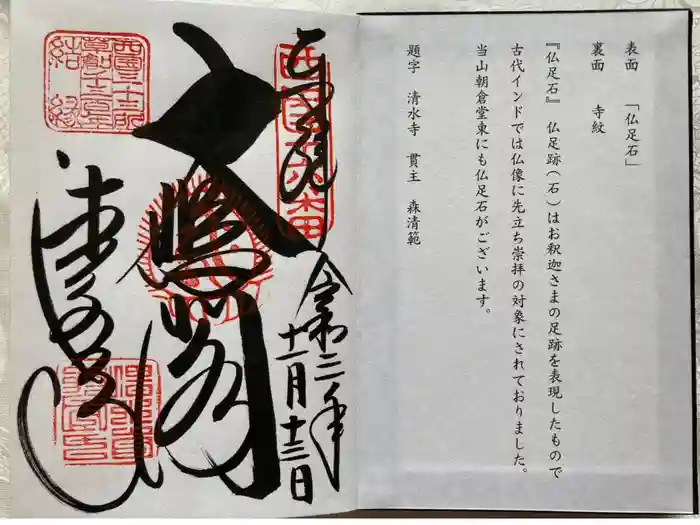 表面 「仏足石」
裏面 寺紋
『仏足石』 仏足跡(石)はお釈迦さまの足跡を表現したもので
古代インドでは仏像に先立ち崇拝の対象にされておりました。
当山朝倉堂東にも仏足石がございます。
題字 清水寺 貫主 森清範
奉拝
令和三年
十一月十三日
大悲閣
清水寺
結縁